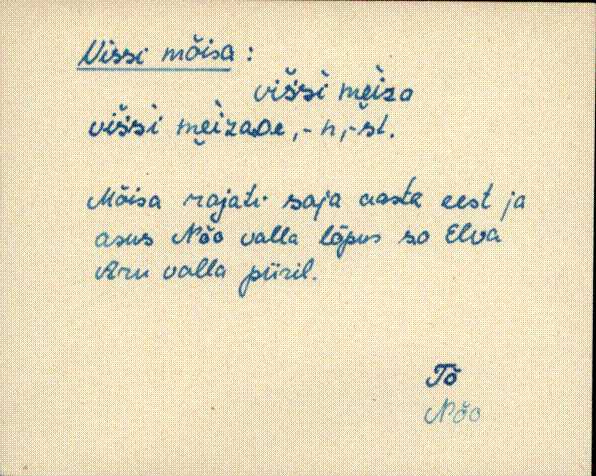 Vissi mõisa :
višsi mei̯za
višsi mei̯zade, -n, -st.
Mõisa rajati saja aasta eest ja
asus Nõo valla lõpus so Elva
Aru valla piiril.
Tõ
Nõo